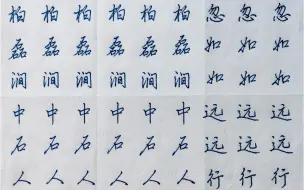 柏柏柏柏柏柏忽忽忽
磊磊磊磊磊磊如如如
涧涧涧涧涧涧如如如
中中中中中中远远远
石石石石石石远远远
人人人人人人行行行